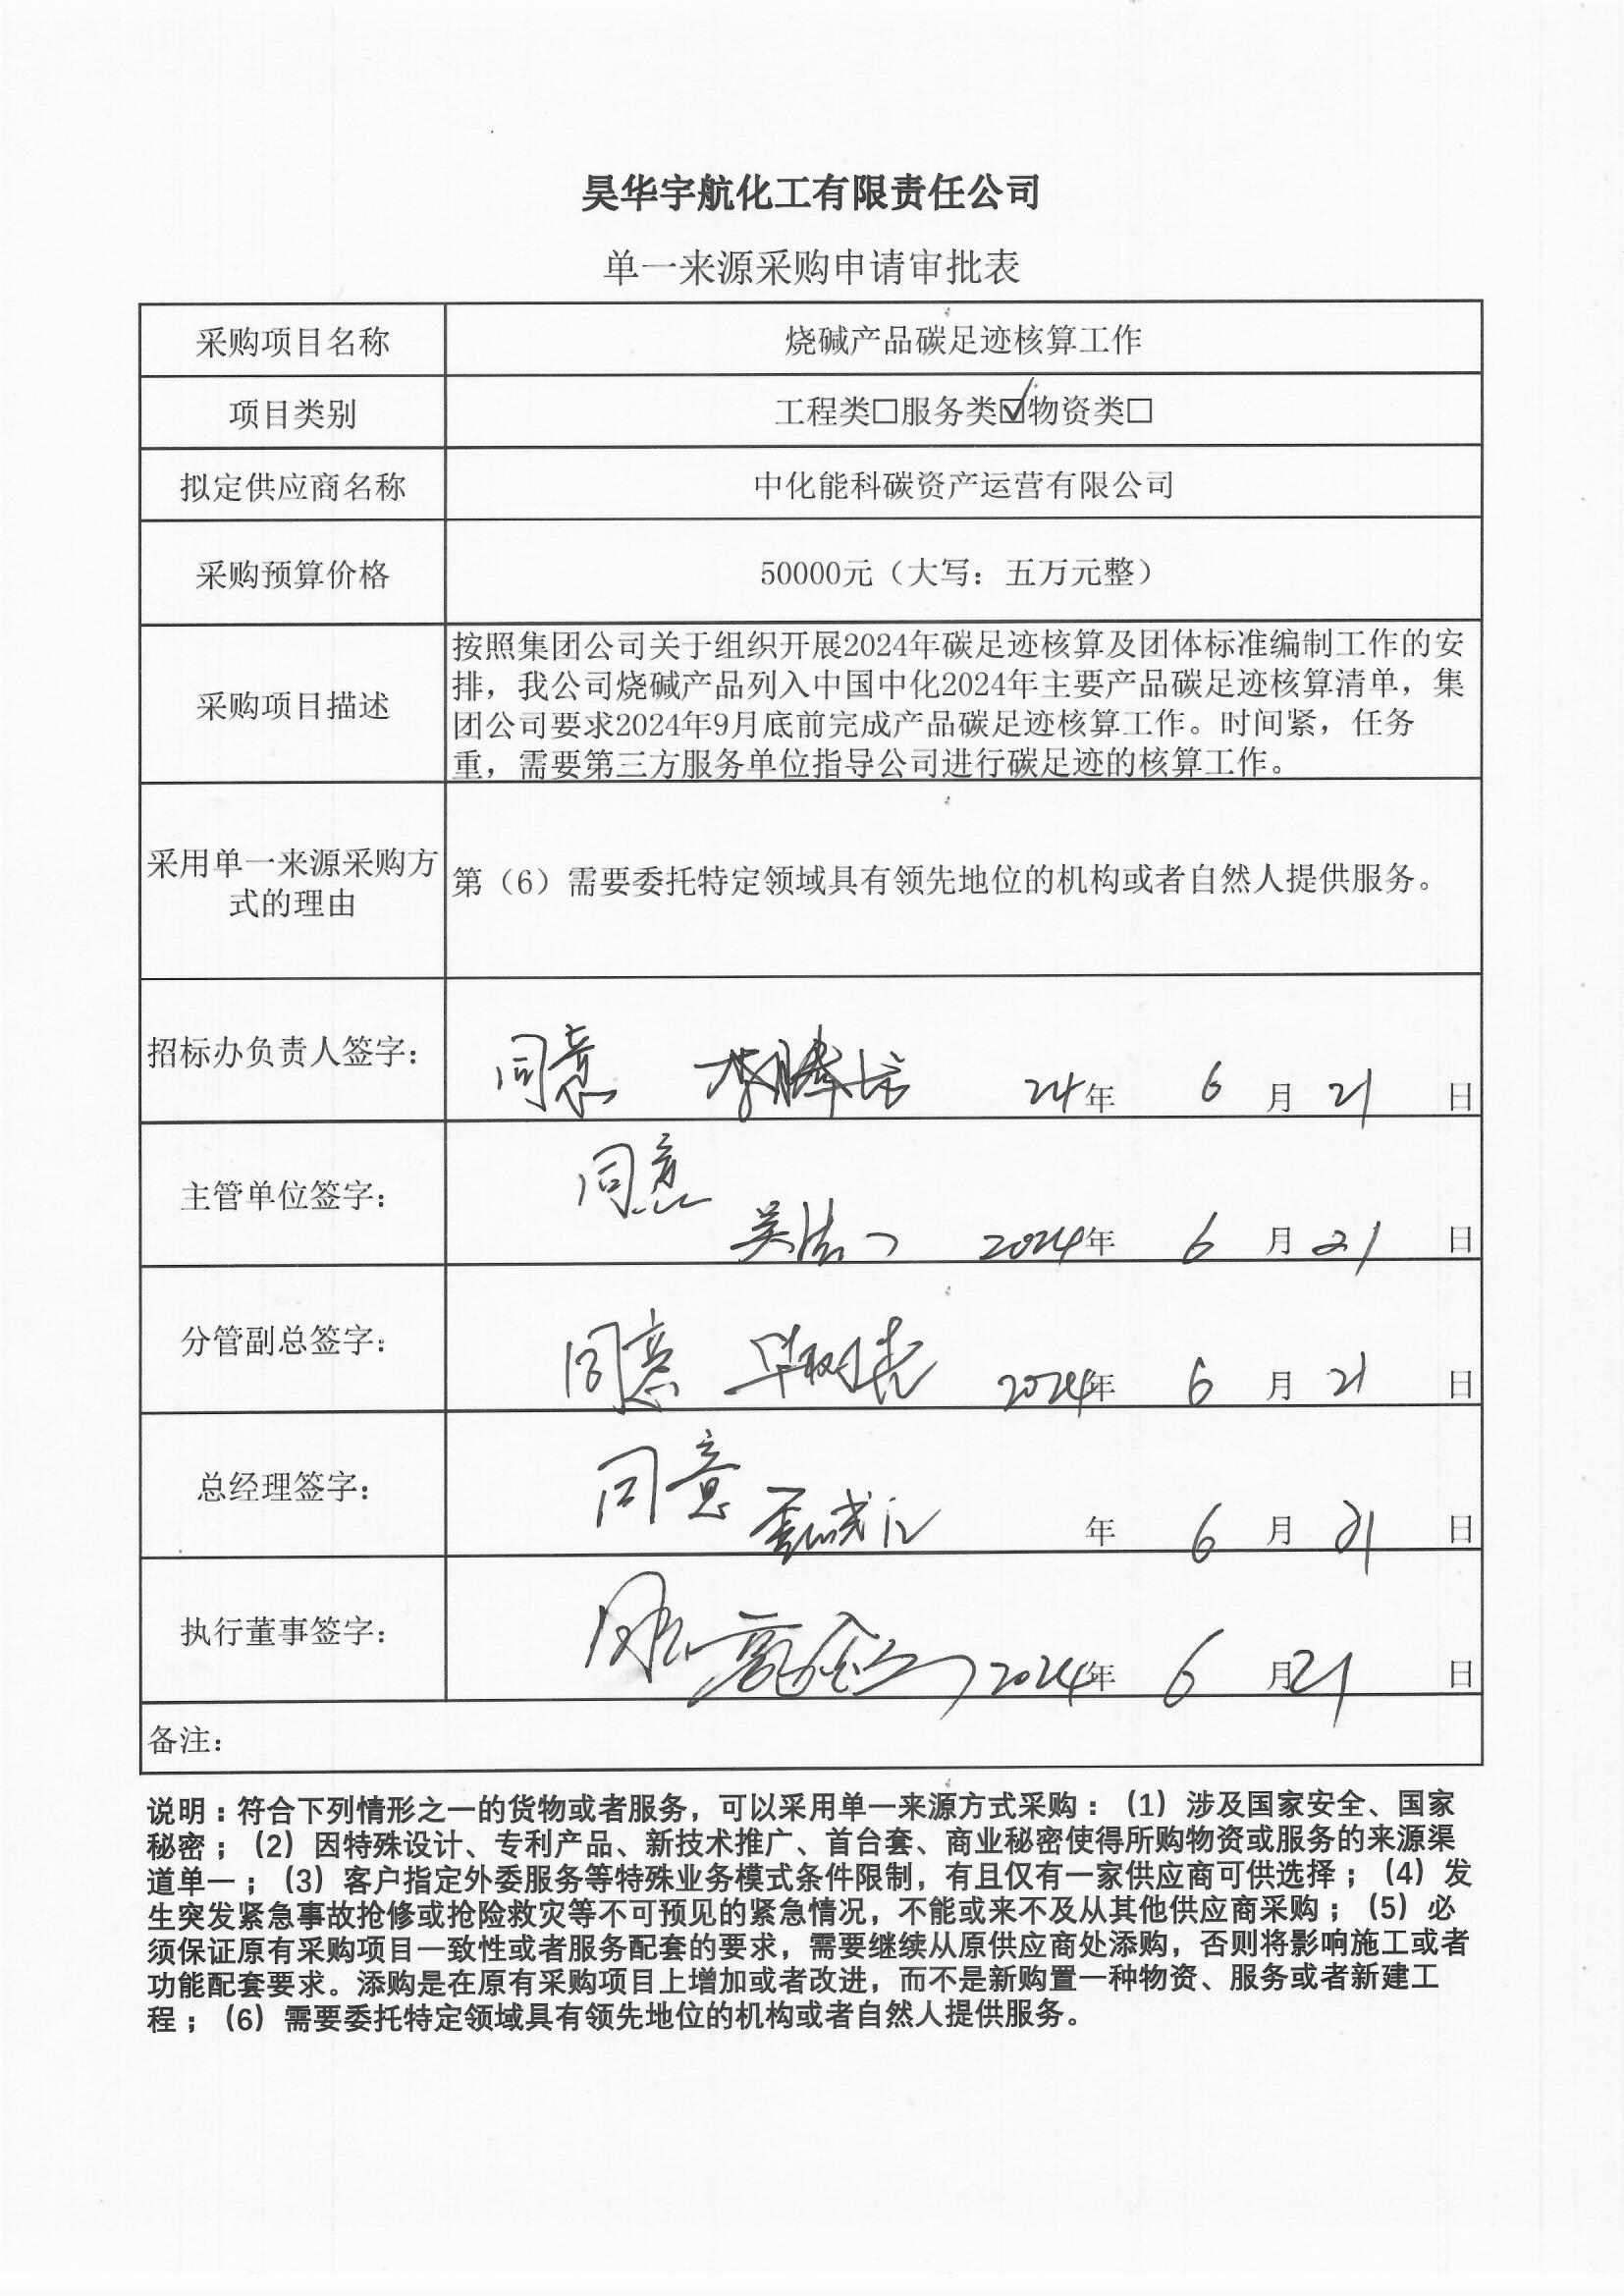 昊华宇航化工有限责任公司
单一来源采购申请审批表
采购项目名称
烧碱产品碳足迹核算工作
项目类别
工程类□服务类☑物资类□
拟定供应商名称
中化能科碳资产运营有限公司
采购预算价格
50000元（大写：五万元整）
采购项目描述
按照集团公司关于组织开展2024年碳足迹核算及团体标准编制工作的安
排，我公司烧碱产品列入中国中化2024年主要产品碳足迹核算清单，集
团公司要求2024年9月底前完成产品碳足迹核算工作。时间紧，任务
重，需要第三方服务单位指导公司进行碳足迹的核算工作。
采用单一来源采购方
式的理由
第（6）需要委托特定领域具有领先地位的机构或者自然人提供服务。
招标办负责人签字：
同意 24年 6 月 21 日
主管单位签字：
同意
2024年 6 月 21 日
分管副总签字：
同意 2024年 6 月 21 日
总经理签字：
同意
年 6 月 21 日
执行董事签字：
2024年 6 月 21 日
备注：
说明：符合下列情形之一的货物或者服务，可以采用单一来源方式采购：（1）涉及国家安全、国家
秘密；（2）因特殊设计、专利产品、新技术推广、首台套、商业秘密使得所购物资或服务的来源渠
道单一；（3）客户指定外委服务等特殊业务模式条件限制，有且仅有一家供应商可供选择；（4）发
生突发紧急事故抢修或抢险救灾等不可预见的紧急情况，不能或来不及从其他供应商采购；（5）必
须保证原有采购项目一致性或者服务配套的要求，需要继续从原供应商处添购，否则将影响施工或者
功能配套要求。添购是在原有采购项目上增加或者改进，而不是新购置一种物资、服务或者新建工
程；（6）需要委托特定领域具有领先地位的机构或者自然人提供服务。